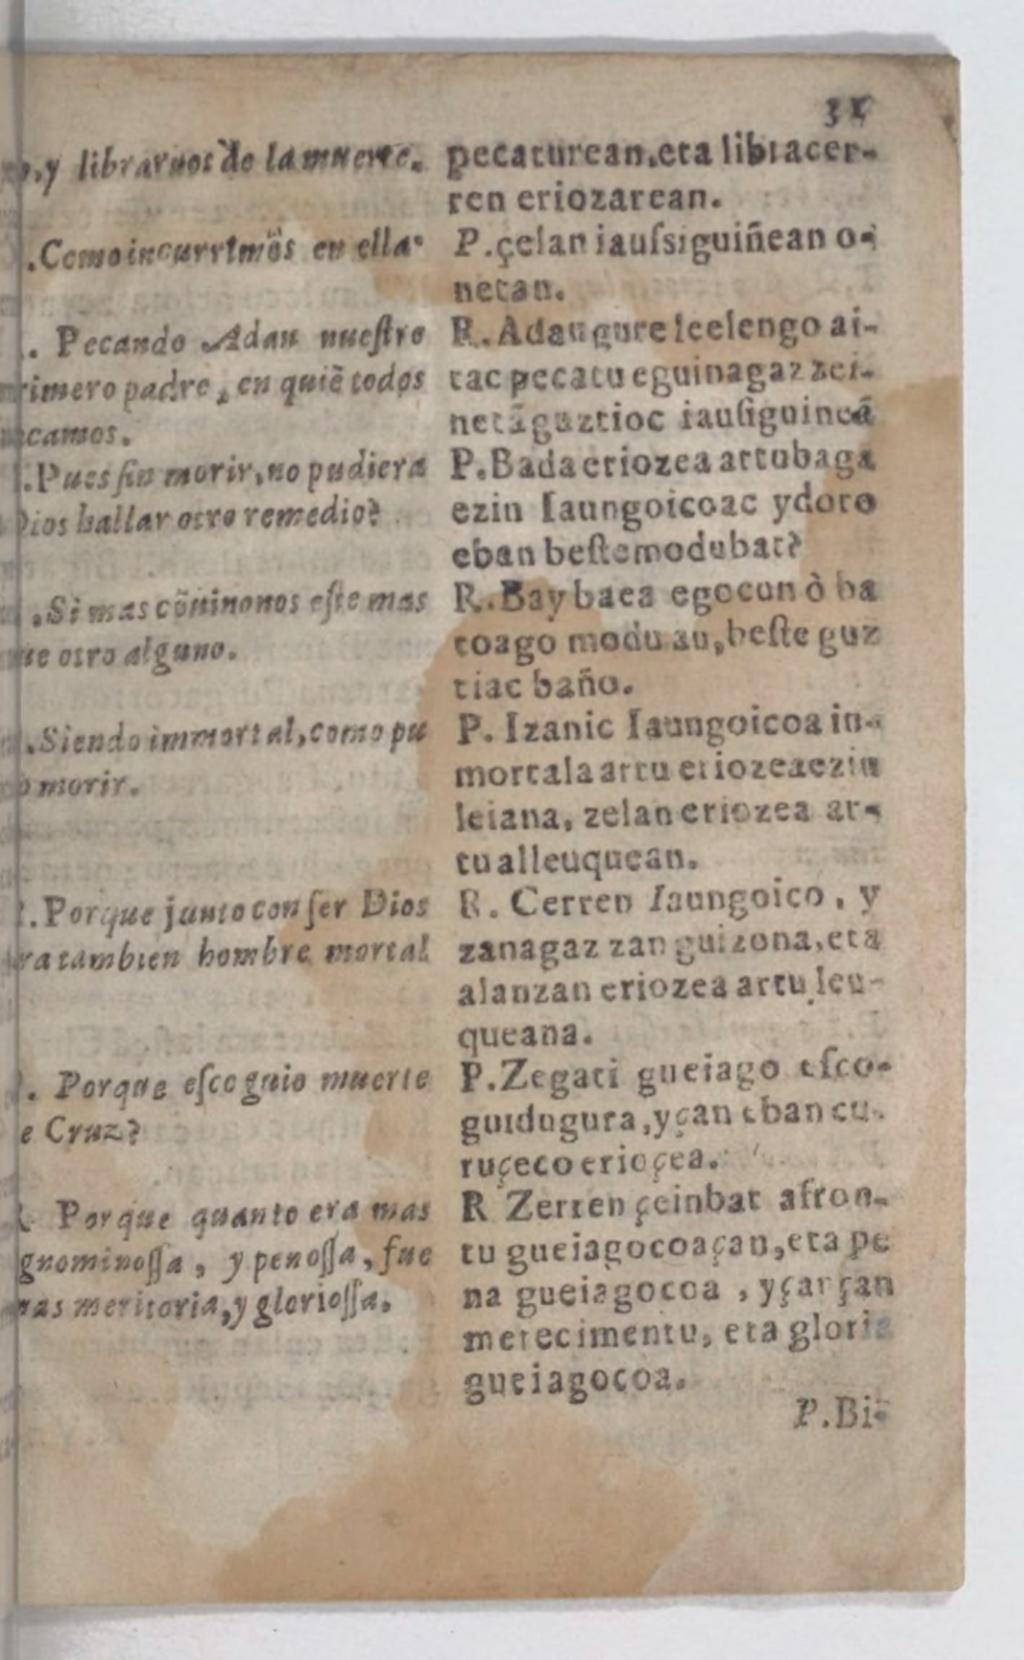 31
y librarnos de la muerte.
.Como incurrimos en ella
. Pecando Adan nueſtro
rimero padre, en quiē todos
camos.
.Pues ſin morir, no pudiera
Dios hallar otro remedio?
.Si mas cōninonos eſte mas
ue otro alguno.
.Siendo immortal, como pu
o morir.
.Porque junto con ſer Dios
ra tambien hombre mortal
. Porque eſcoguio muerte
e Cruz?
Porque quanto era mas
gnominoſſa, y penoſſa, fue
mas meritoria, y glorioſſa.
pecaturean, eta libracer-
ren eriozarean.
P.çelan iauſsiguiñean o-
netan.
R.Adan gure leelengo ai-
tac pecatu eguinagaz zei-
netāguztioc iauſiguineā
P.Bada eriozea artubaga
ezin Iaungoicoac ydoro
eban beſtemodubat?
R.Bay baea egocun ò ba
toago modu au, beſte guz
tiac baño.
P. Izanic Iaungoicoa in-
mortala artu eriozeaezin
leiana, zelan eriozea ar-
tualleuquean.
R. Cerren Iaungoico, y
zanagaz zan guizona, eta
alanzan eriozea artu leu-
queana.
P.Zegati gueiago eſco-
guidugura, yçan eban cu-
ruçeco erioçea.
R Zerren çeinbat afron-
tu gueiagocoaçan, eta pe
na gueiagocoa, yçarçan
merecimentu, eta gloria
gueiagocoa.
P.Bi-